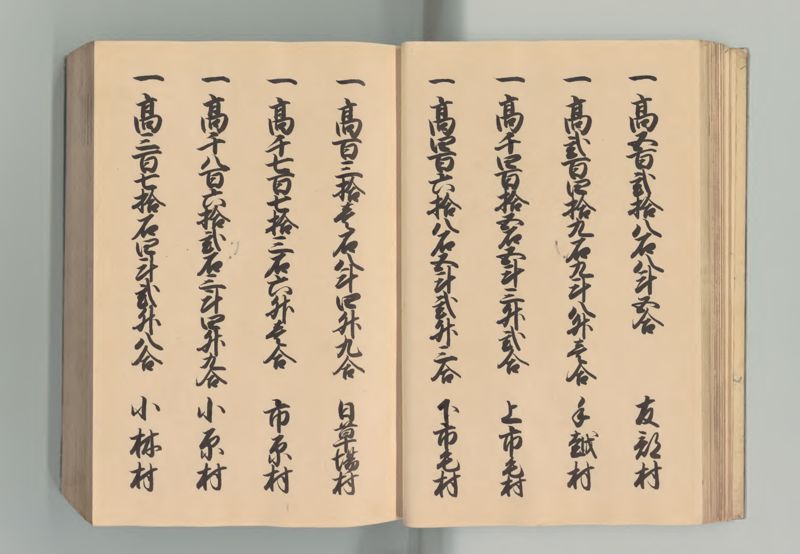 一 高五百弐拾八石八斗五合 友部村
一 高弐百四拾九石九斗八升壱合 手越村
一 高千四百拾五石五斗三升弐合 上市毛村
一 高四百六拾八石五斗弐升三合 下市毛村
一 高百三拾壱石八斗四升九合 日草場村
一 高千七百七拾三石六升壱合 市原村
一 高千八百六拾弐石三斗四升九合 小原村
一 高三百七拾石四斗弐升八合 小林村